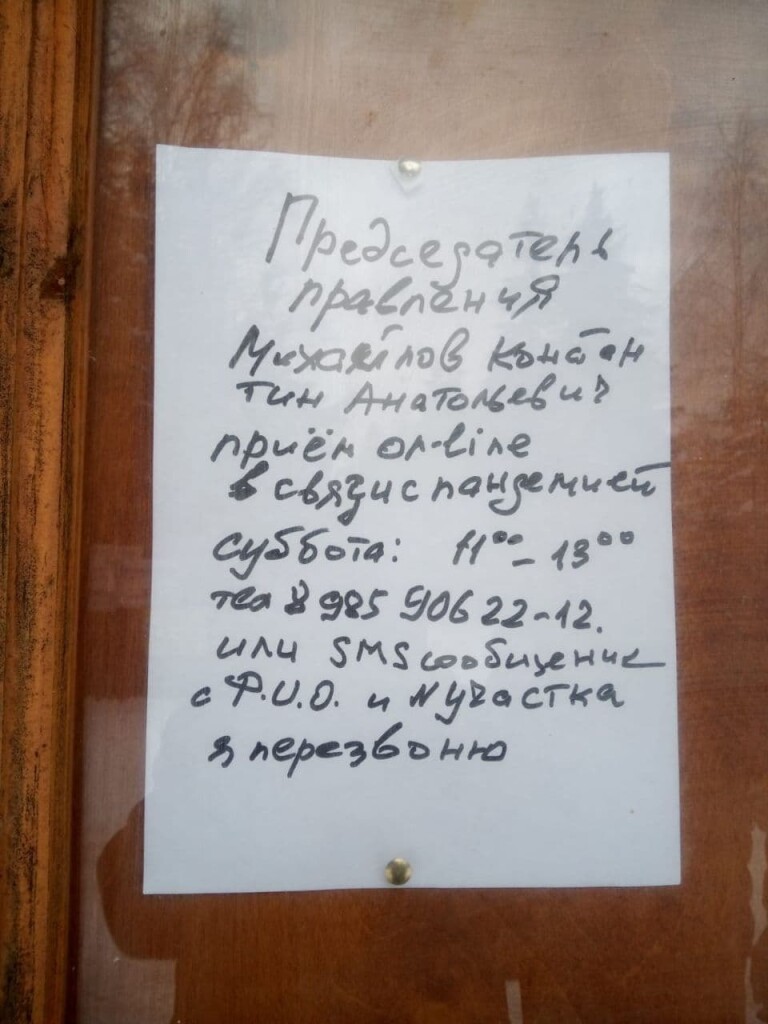 Председатель
правления
Михайлов Констан
тин Анатольевич
приём on-line
в связи с пандемией
суббота: 11⁰⁰ - 13⁰⁰
тел 8 985 906 22-12.
или SMS сообщение
с Ф.И.О. и N участка
я перезвоню